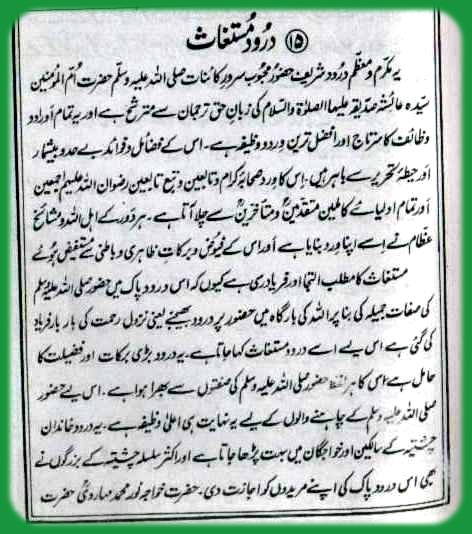 ⑮ درُود مُستغاث
یہ مکرّم و معظّم درُود شریف حضور محبوب سرورِ کائنات صلی اللہ علیہ وسلّم حضرت اُمّ المؤمنین
سیّدہ عائشہ صدّیقہ علیہا الصلوٰۃ والسلام کی زبانِ حق ترجمان سے مترشح ہے اور یہ تمام اوراد و
وظائف کا سرتاج اور افضل ترین وِرد و وظیفہ ہے۔ اس کے فضائل و فوائد بے حد و بیشمار
اور حیطۂ تحریر سے باہر ہیں؛ اِس کا وِرد صحابۂ کرام و تابعین و تبع تابعین رضوان اللہ علیہم اجمعین
اور تمام اولیائے کاملین متقدّمین و متأخرین سے چلا آتا ہے۔ ہر دَور کے اہل اللہ و مشائخ
عظّام نے اِسے اپنا وِرد بنایا ہے اور اس کے فیوض و برکات ظاہری و باطنی سے مُستفیض ہوئے
مستغاث کا مطلب التجا اور فریاد ری ہے کیوں کہ اس درود پاک میں حضور صلی اللہ علیہ وسلم
کی صفات جمیلہ کی بنا پر اللہ کی بارگاہ میں حضور پر درود بھیجنے یعنی نزولِ رحمت کی بار بار فریاد
کی گئی ہے اس لیے اسے درود مستغاث کہا جاتا ہے۔ یہ درود بڑی برکات اور فضیلت کا
حامل ہے؛ اس کا ہر لفظ حضور صلی اللہ علیہ وسلم کی صفتوں سے بھرا ہوا ہے۔ اس لیے حضور
صلی اللہ علیہ وسلم کے چاہنے والوں کے لیے یہ نہایت ہی اعلیٰ وظیفہ ہے۔ یہ درود خاندان
چشتیہ کے سالکین اور خواجگان میں بہت پڑھا جاتا ہے اور اکثر سلسلہ چشتیہ کے بزرگوں نے
بھی اس درود پاک کی اپنے مریدوں کو اجازت دی۔ حضرت خواجہ نور محمد مہاروی حضرت